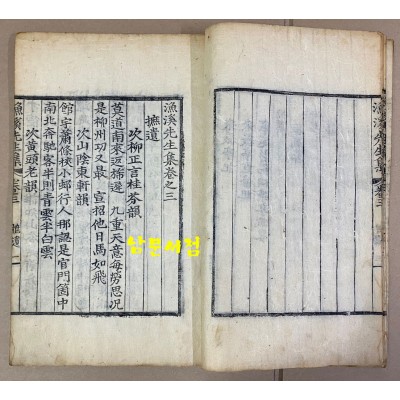 漁溪先生集卷之三
摭遺
次柳正言桂芬韻
莫道南來迈楊邊 九重天意每勞思况
是柳州功又最 宣招他日馬如飛
次山陰東軒韻
館宇蕭條挾小邮行人那認是官門箇中
南北奔馳客半則青雲半白雲
次黄頭老韻
漁溪先生集 卷三 摭遺 一
삼문서점
漁溪先生集 卷三